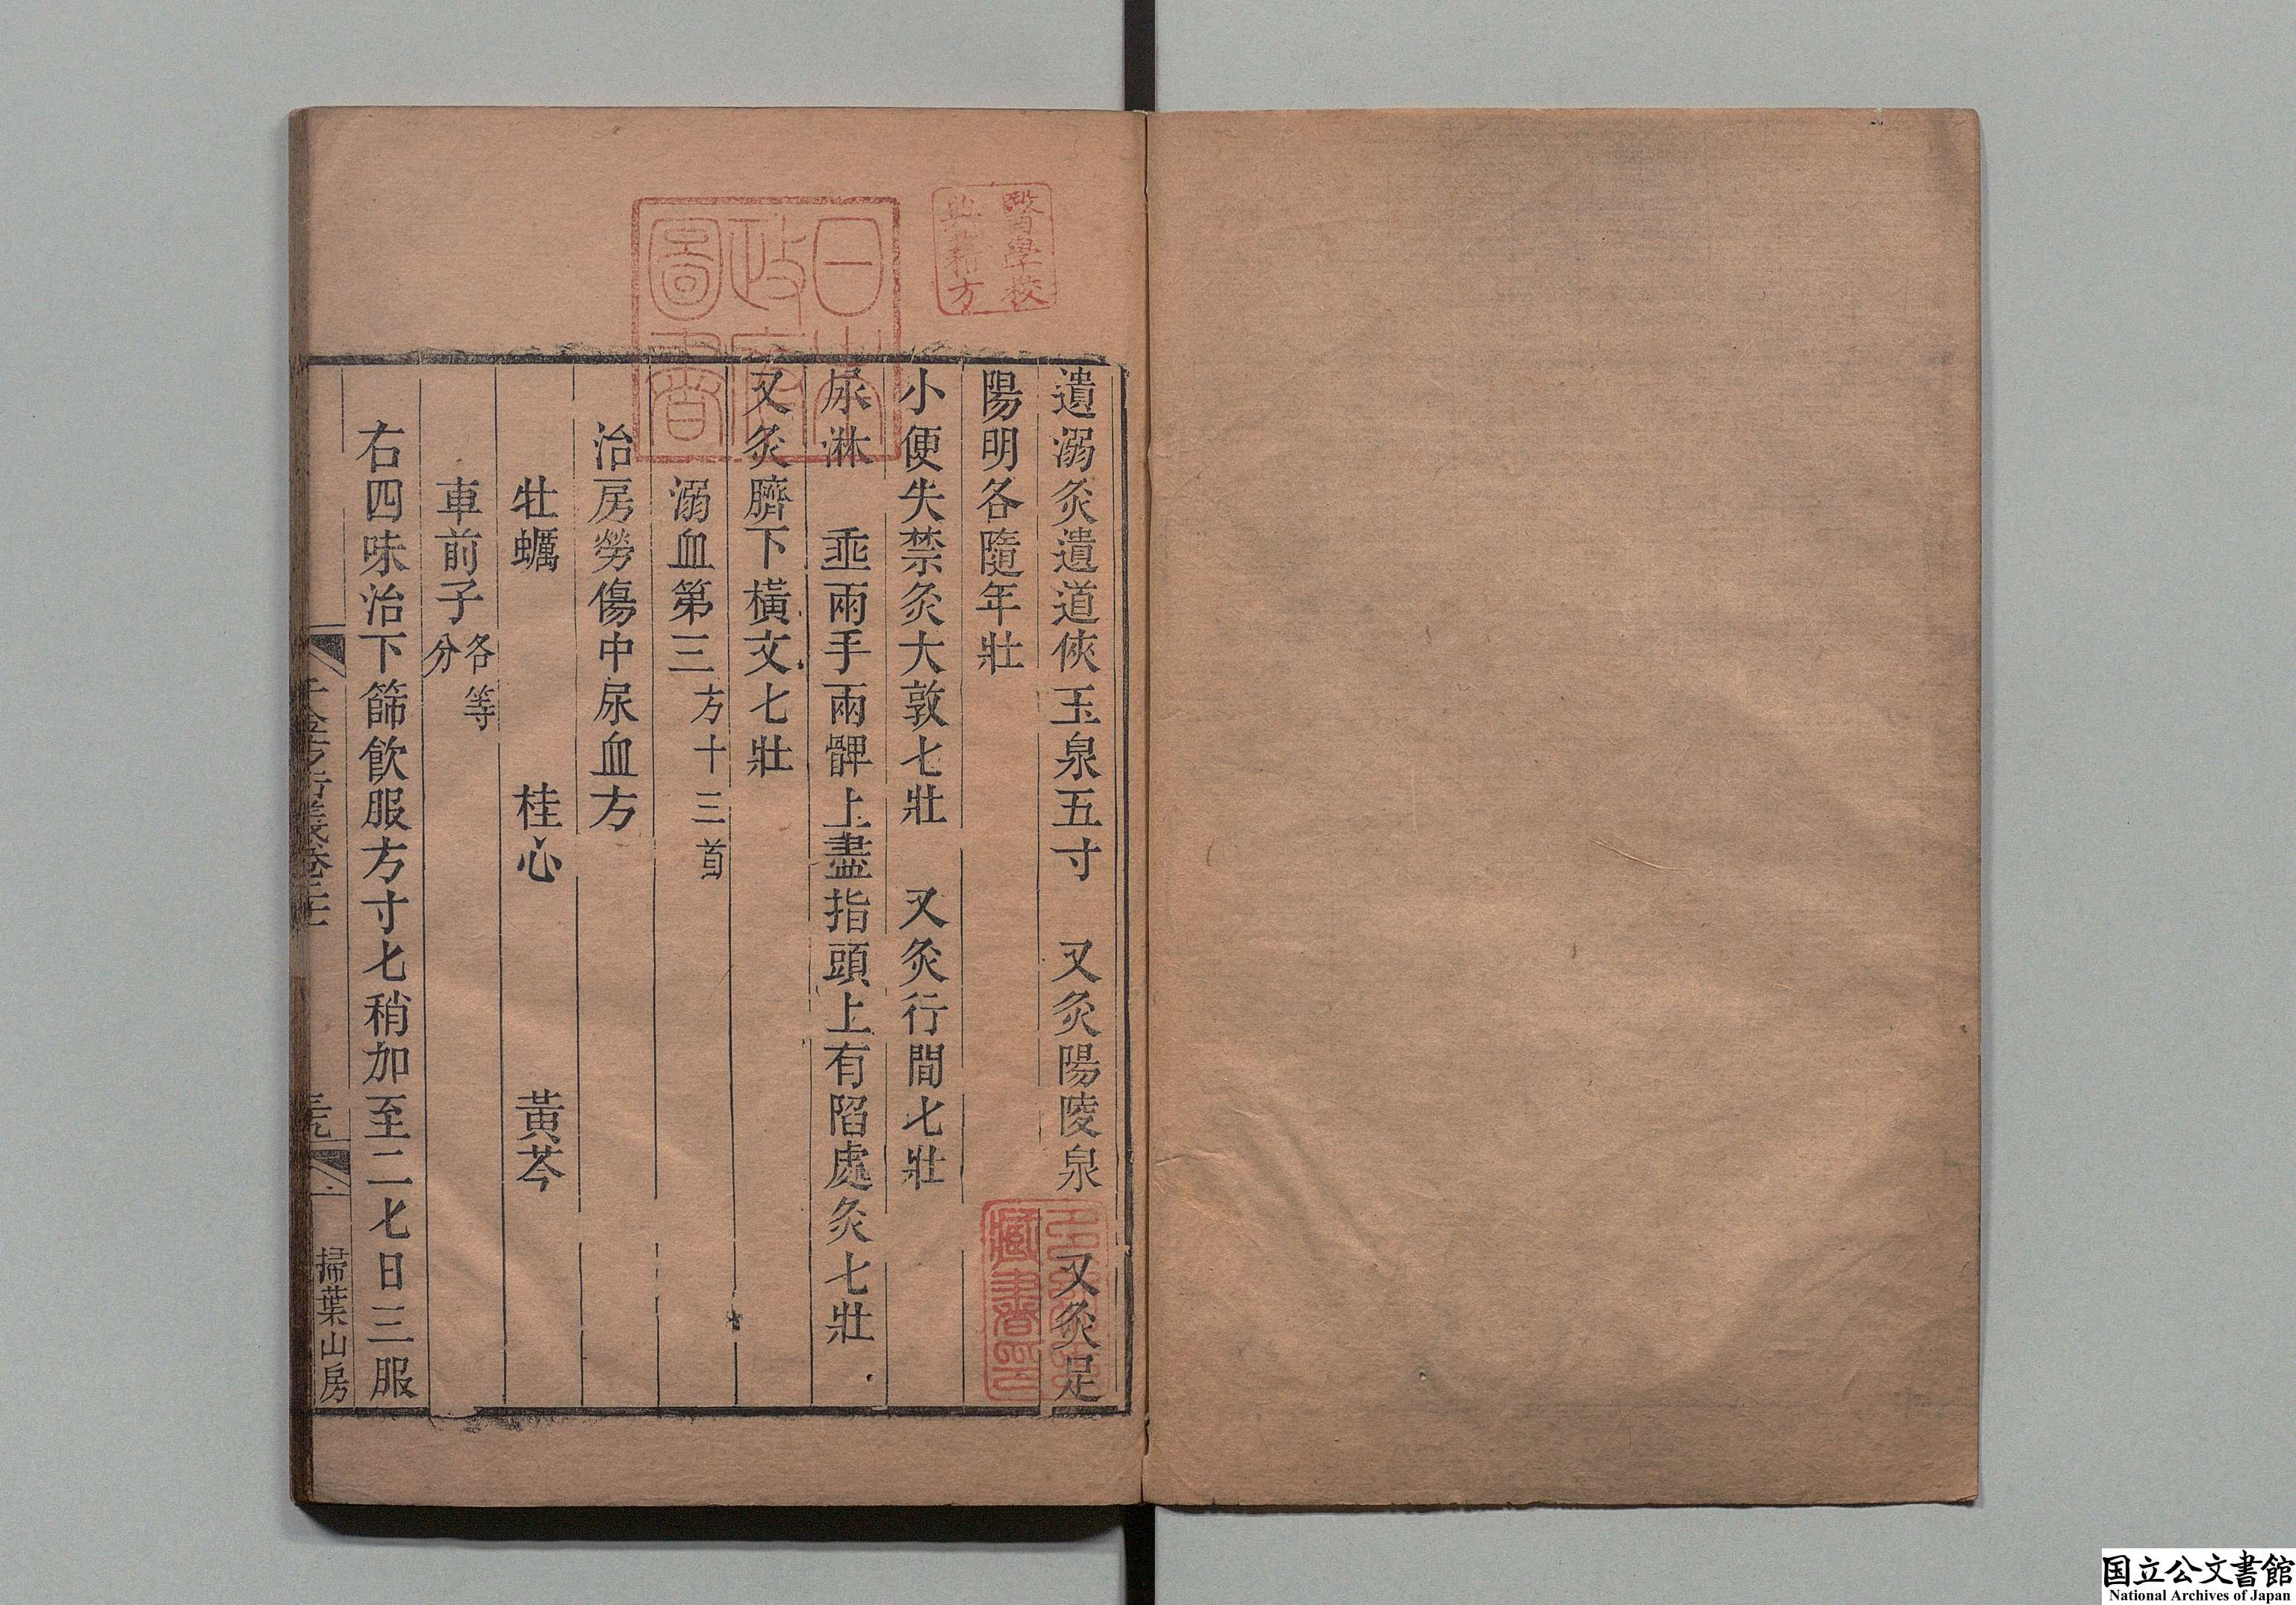 遺溺灸遺道俠玉泉五寸　又灸陽陵泉　又灸足
陽明各隨年壯
小便失禁灸大敦七壯　又灸行間七壯
尿淋　垂兩手兩髀上盡指頭上有陷處灸七壯
又灸臍下橫文七壯
溺血第三方十三首
治房勞傷中尿血方
牡蠣　桂心　黃芩
車前子各等分
右四味治下篩飲服方寸匕稍加至二匕日三服
掃葉山房
醫學校
典藉方
日
政
圖書
藏書
国立公文書館
National Archives of Japan